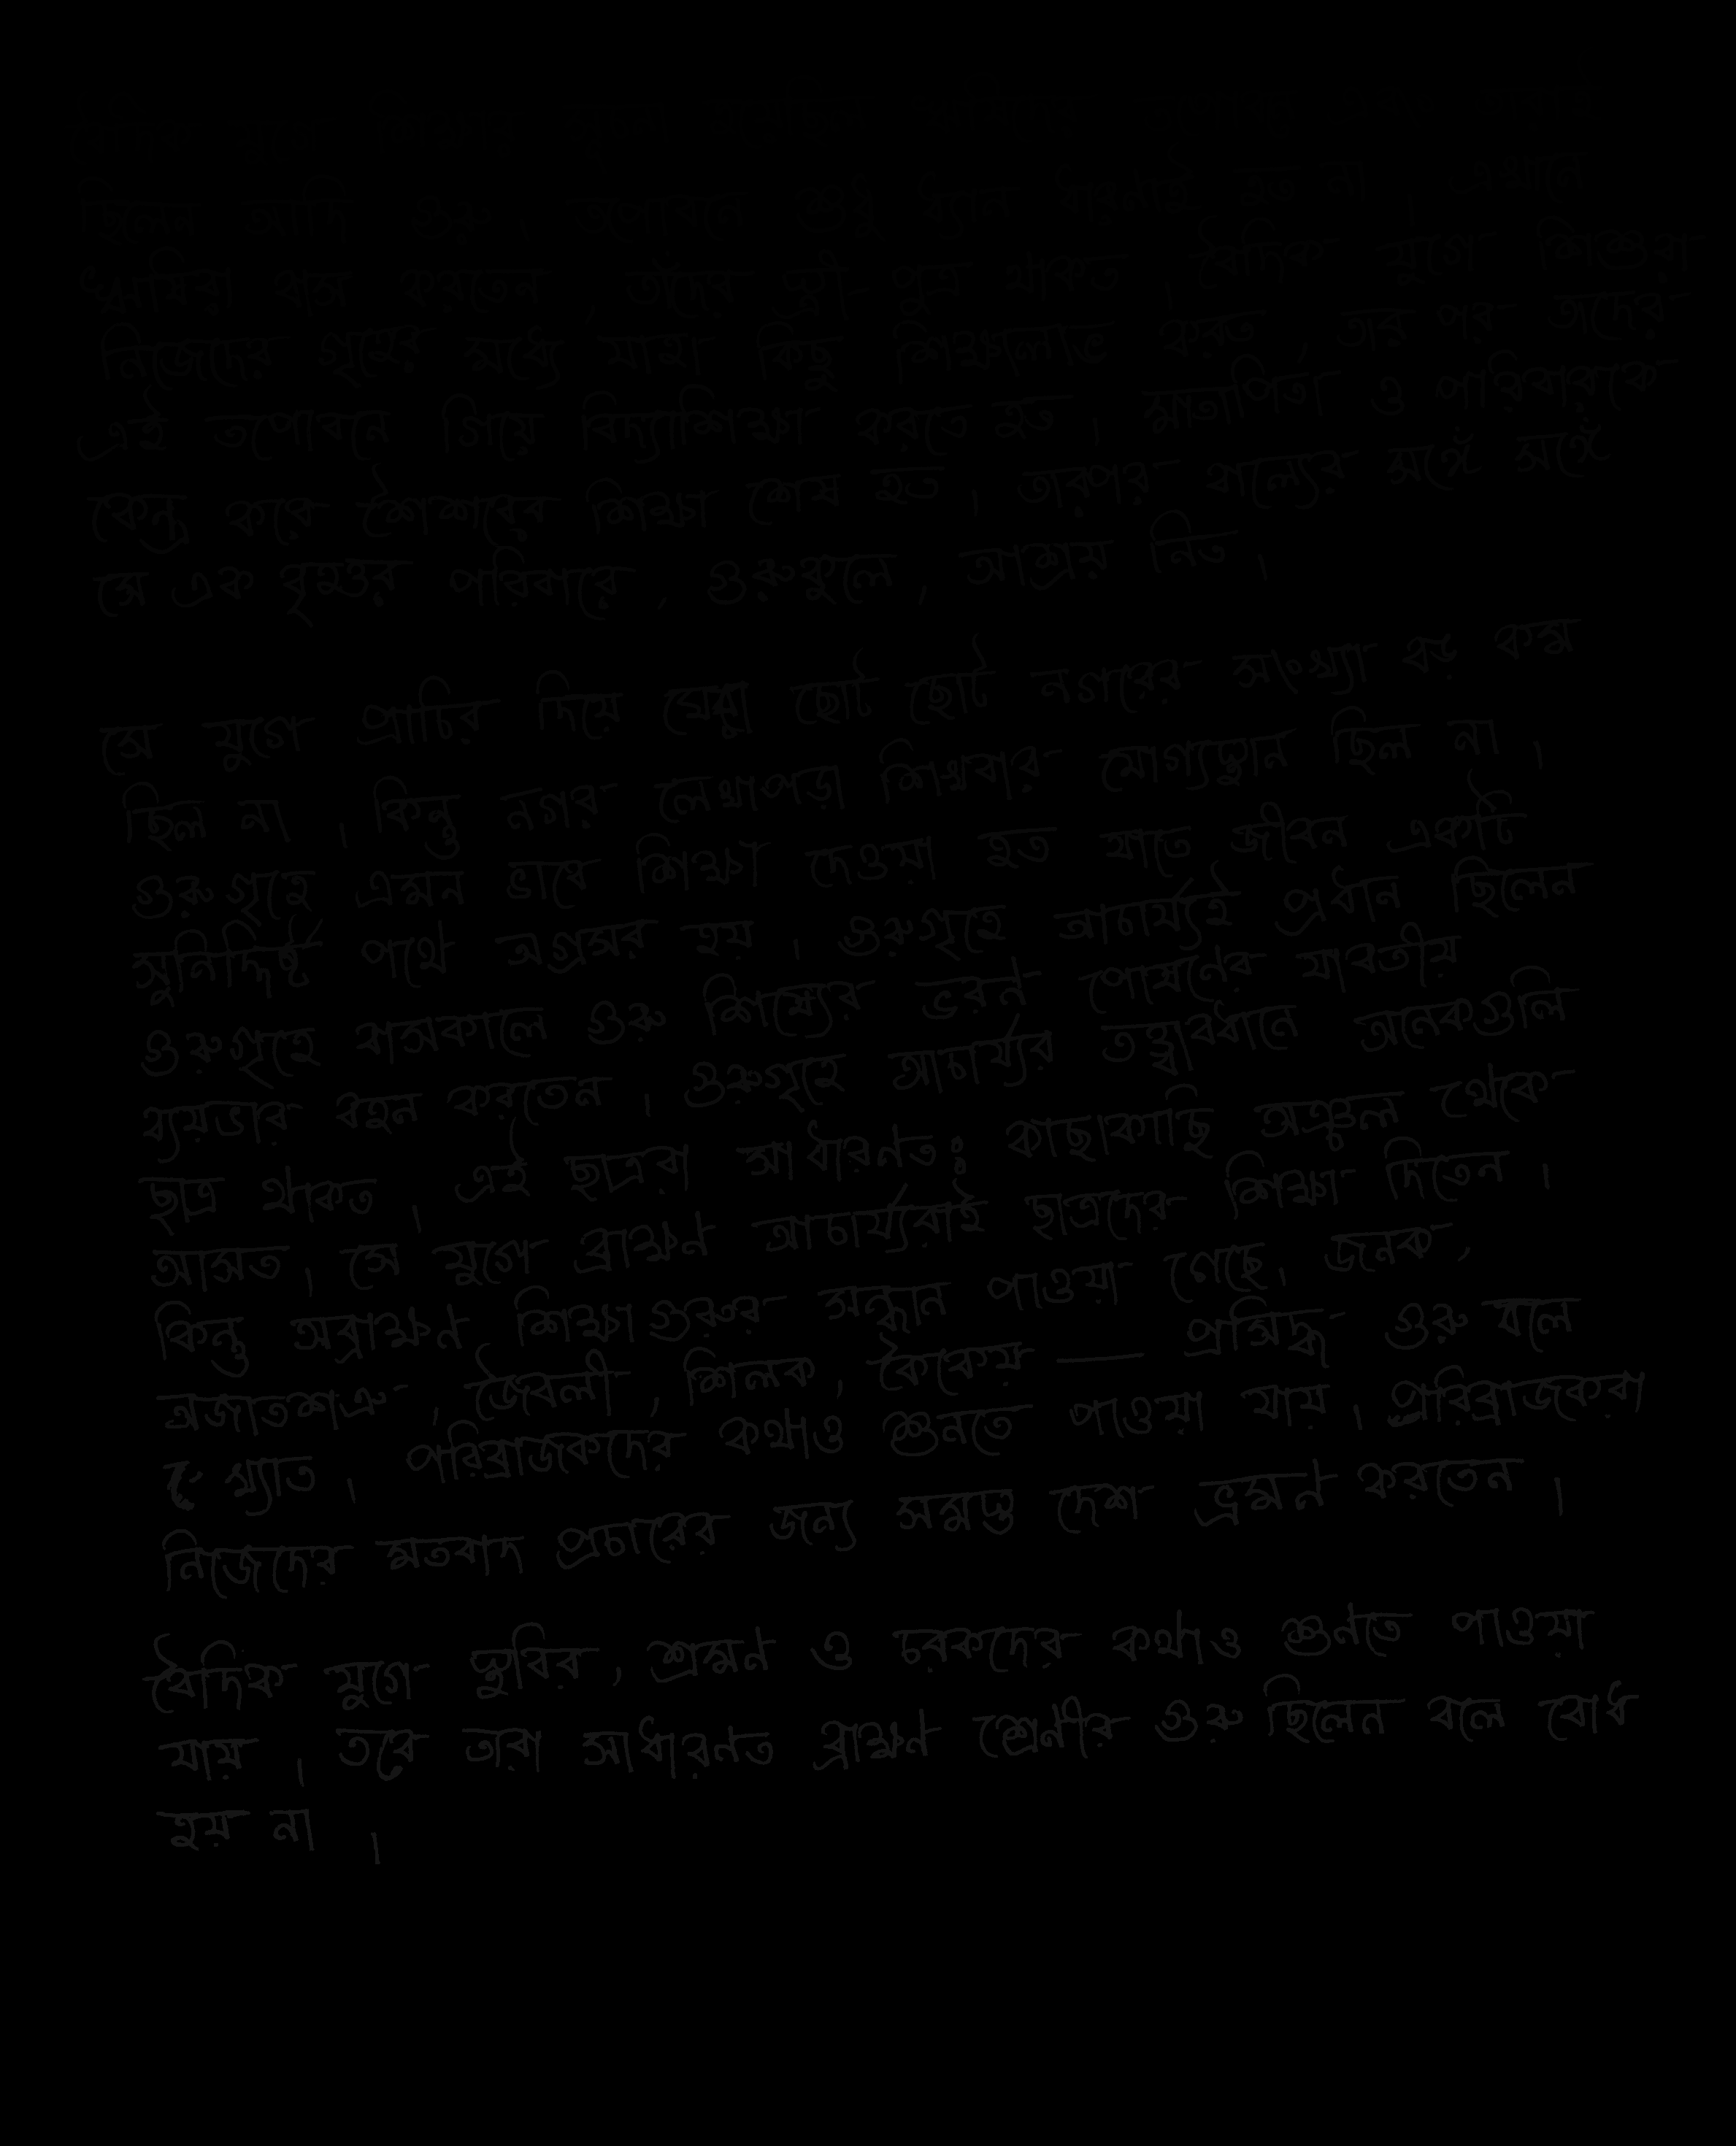 ছিলেন আদি গুরু । তপোবনে শুধু ধ্যান ধারনাই হত না । এখানে
ঋষিরা বাস করতেন, তাঁদের স্ত্রী-পুত্র থাকত । বৈদিক যুগে শিশুরা
নিজেদের গৃহের মধ্যে যাহা কিছু শিক্ষালাভ করত, তার পর তাদের
এই তপোবনে গিয়ে বিদ্যাশিক্ষা করতে হত । মাতাপিতা ও পরিবারকে
কেন্দ্র করে শৈশবের শিক্ষা শেষ হত । তারপর বাল্যের সঙ্গে সঙ্গে
সে এক বৃহত্তর পরিবারে, গুরুকুলে, আশ্রয় নিত ।
সে যুগে প্রাচির দিয়ে ঘেরা ছোট ছোট নগরের সংখ্যা বড় কম
ছিল না । কিন্তু নগর লেখাপড়া শিখবার যোগ্যস্থান ছিল না ।
গুরুগৃহে এমন ভাবে শিক্ষা দেওয়া হত যাতে জীবন একটি
সুনির্দিষ্ট পথে অগ্রসর হয় । গুরুগৃহে আচার্য্যই প্রধান ছিলেন
গুরুগৃহে বাসকালে গুরু শিষ্যের ভরণ পোষনের যাবতীয়
ব্যয়ভার বহন করতেন । গুরুগৃহে আচার্য্যর তত্ত্বাবধানে অনেকগুলি
ছাত্র থাকত । এই ছাত্ররা সাধারণতঃ কাছাকাছি অঞ্চল থেকে
আসত । সে যুগে ব্রাহ্মণ আচার্য্যরাই ছাত্রদের শিক্ষা দিতেন ।
কিন্তু অব্রাহ্মণ শিক্ষাগুরুর সন্ধান পাওয়া গেছে । জনক,
অজাতশত্রু, জৈবলী, শিলক, কৈকেয় — প্রসিদ্ধ গুরু বলে
খ্যাত । পরিব্রাজকদের কথাও শুনতে পাওয়া যায় । পরিব্রাজকেরা
নিজেদের মতবাদ প্রচারের জন্য সমস্ত দেশ ভ্রমণ করতেন ।
বৈদিক যুগে স্থবির, শ্রমণ ও চরকদের কথাও শুনতে পাওয়া
যায় । তবে তারা সাধারণত ব্রাহ্মণ শ্রেণীর গুরু ছিলেন বলে বোধ
হয় না ।